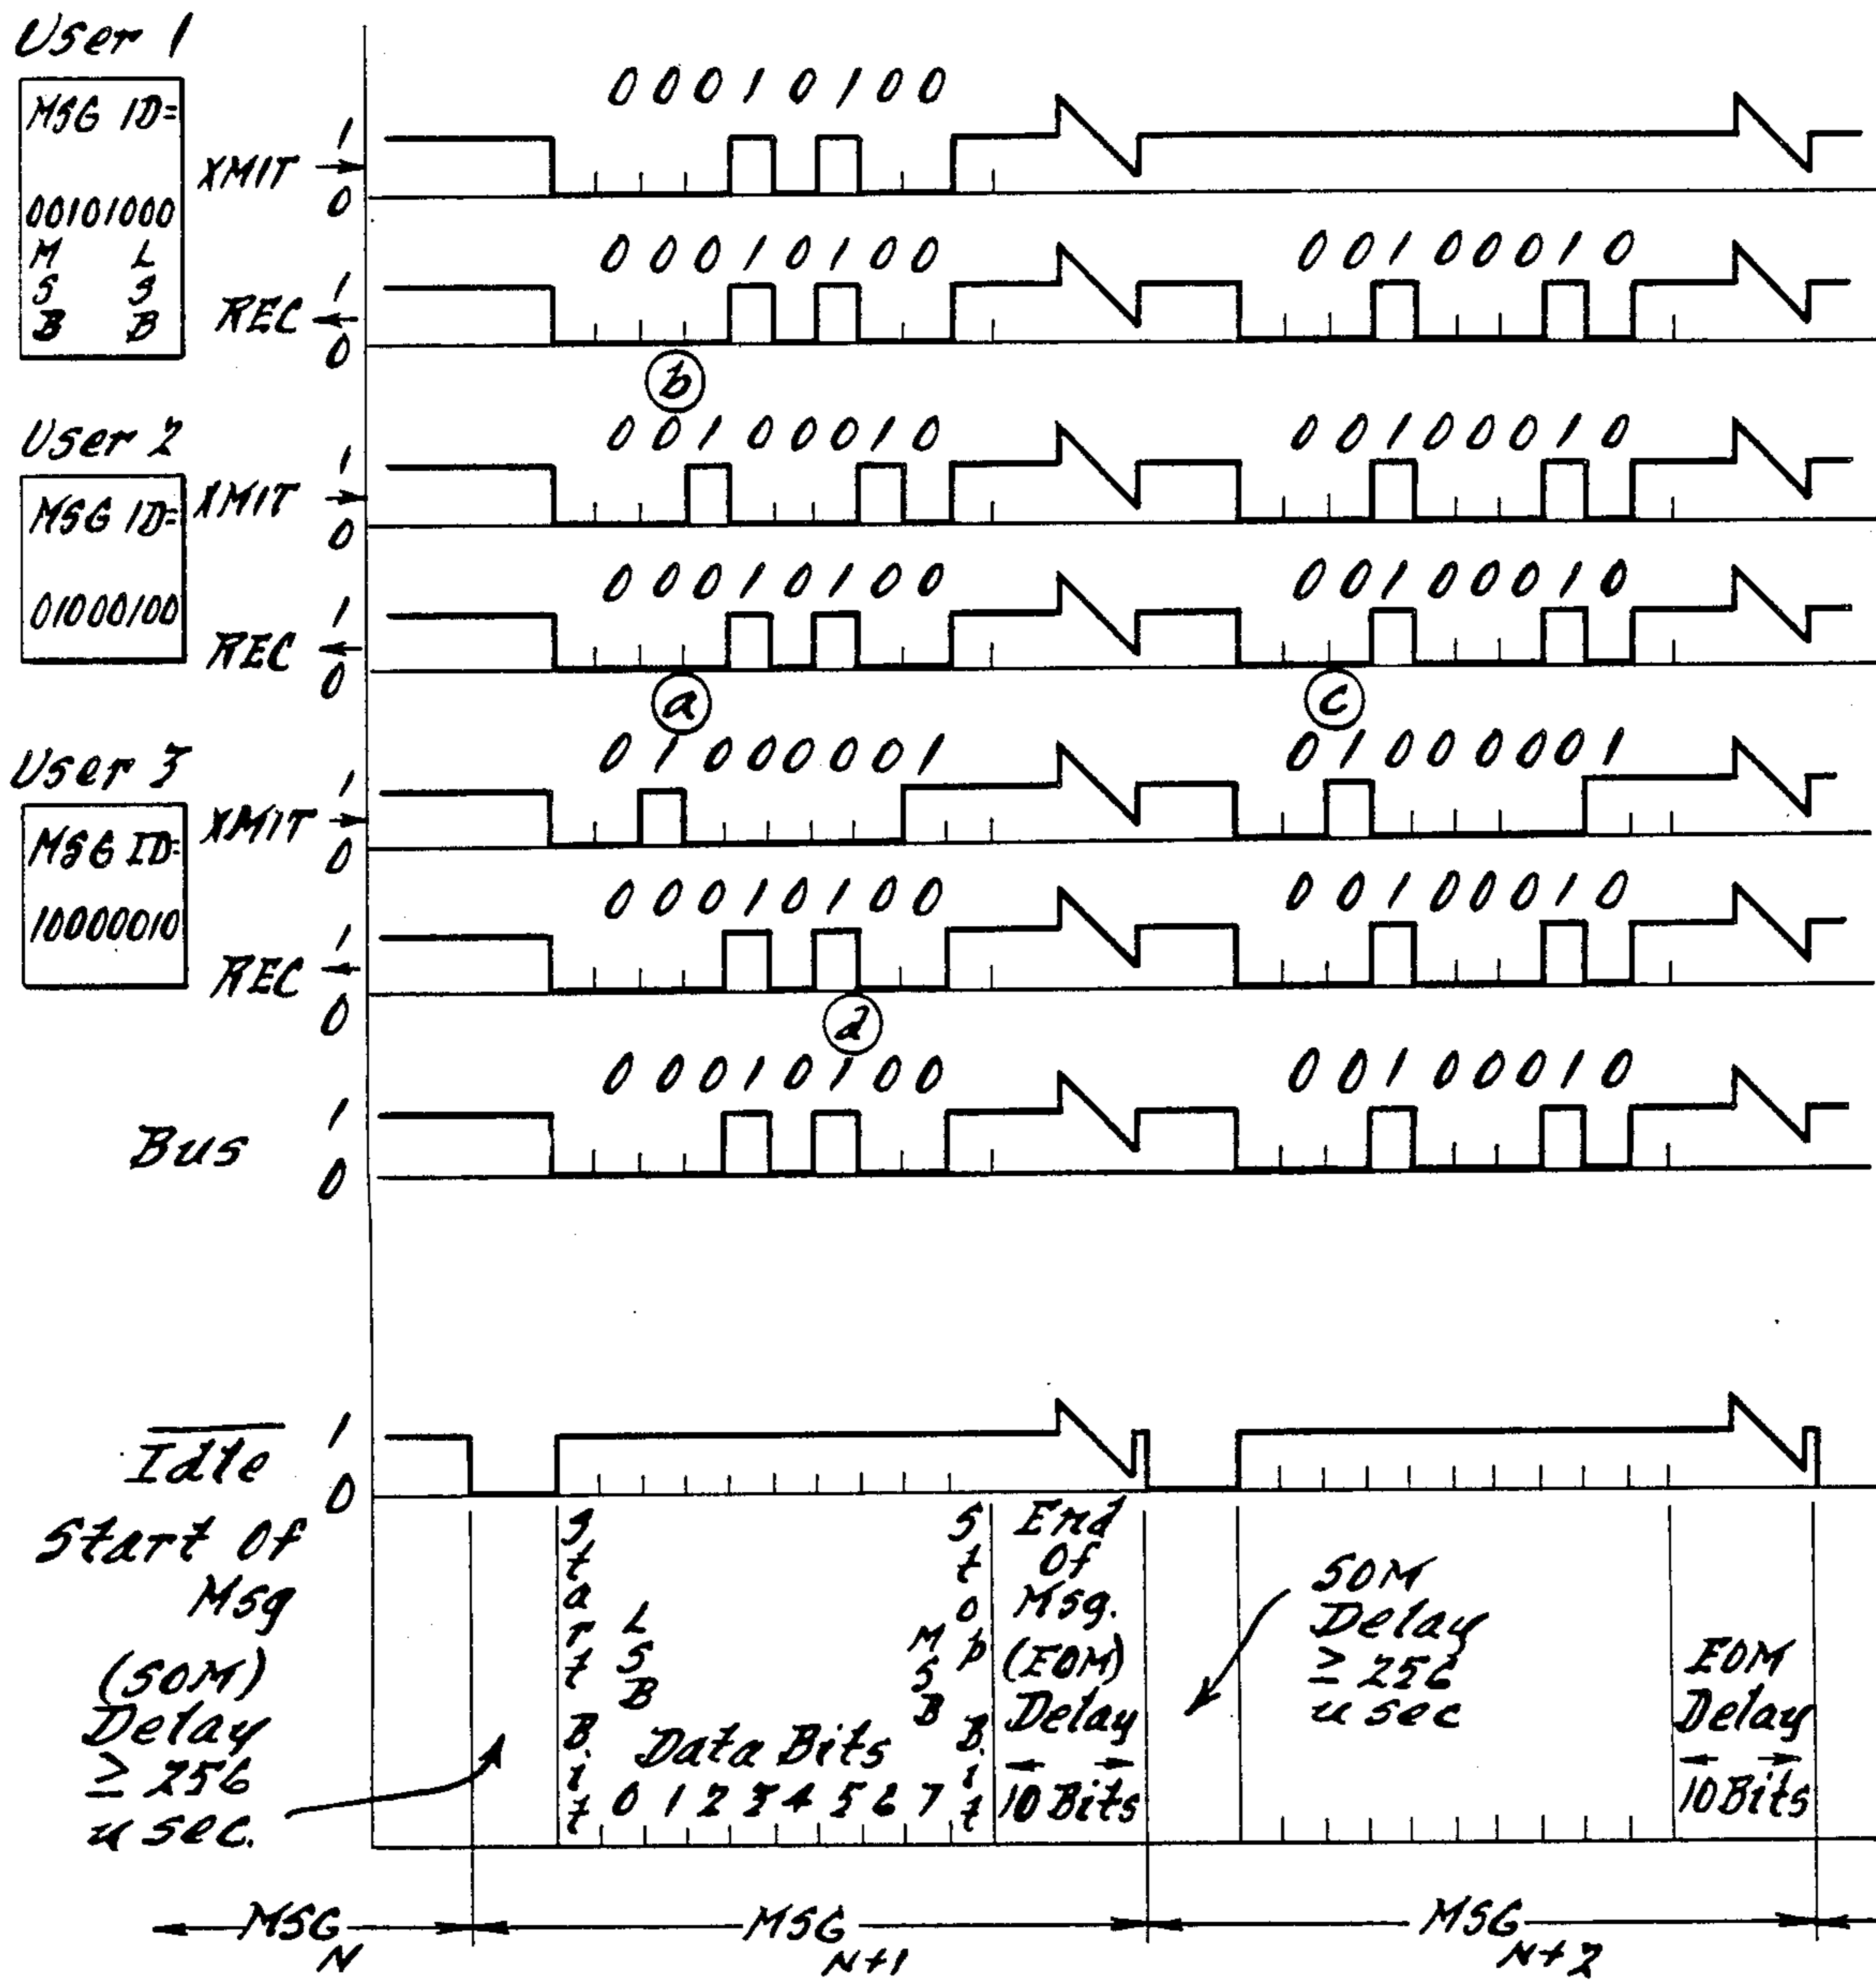 User 1
MSG ID=
00101000
M L
S S
B B
XMIT
1
0
0 0 0 1 0 1 0 0
REC
1
0
0 0 0 1 0 1 0 0
0 0 1 0 0 0 1 0
b
User 2
MSG ID=
01000100
XMIT
1
0
0 0 1 0 0 0 1 0
0 0 1 0 0 0 1 0
REC
1
0
0 0 0 1 0 1 0 0
0 0 1 0 0 0 1 0
a
c
User 3
MSG ID=
10000010
XMIT
1
0
0 1 0 0 0 0 0 1
0 1 0 0 0 0 0 1
REC
1
0
0 0 0 1 0 1 0 0
0 0 1 0 0 0 1 0
d
Bus
1
0
0 0 0 1 0 1 0 0
0 0 1 0 0 0 1 0
Idle
1
0
Start Of
Msg
(SOM)
Delay
≥ 256
u sec.
Start Bit
LSB
Data Bits
0 1 2 3 4 5 6 7
MSB
Stop Bit
End
Of
Msg.
(EOM)
Delay
10 Bits
SOM
Delay
≥ 256
u sec
EOM
Delay
10 Bits
MSG N
MSG N+1
MSG N+2